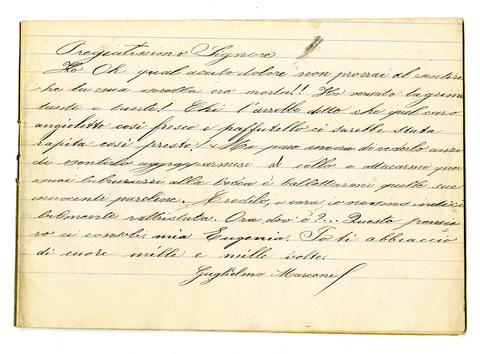 Pregiatissimo Signore
Oh qual acuto dolore non provai al sentire
che la sua era morta!! Ho versato lagrime
tante e tante! Chi l'avrebbe detto che quel caro
angioletto così fresco e paffutello ci sarebbe stato
rapita così presto! Me pare ancora di vederlo anzi
di sentirlo aggrapparmisi al collo e attaccarmi quei
suoi alla bocca e quelle sue
innocenti paroline. Credilo, o cara, io ne sono
rattristata. Ora dov'è?... Questo pensie
ro ci consoli, mia Eugenia. Io ti abbraccio
di cuore mille e mille volte.
Guglielmo Marconi